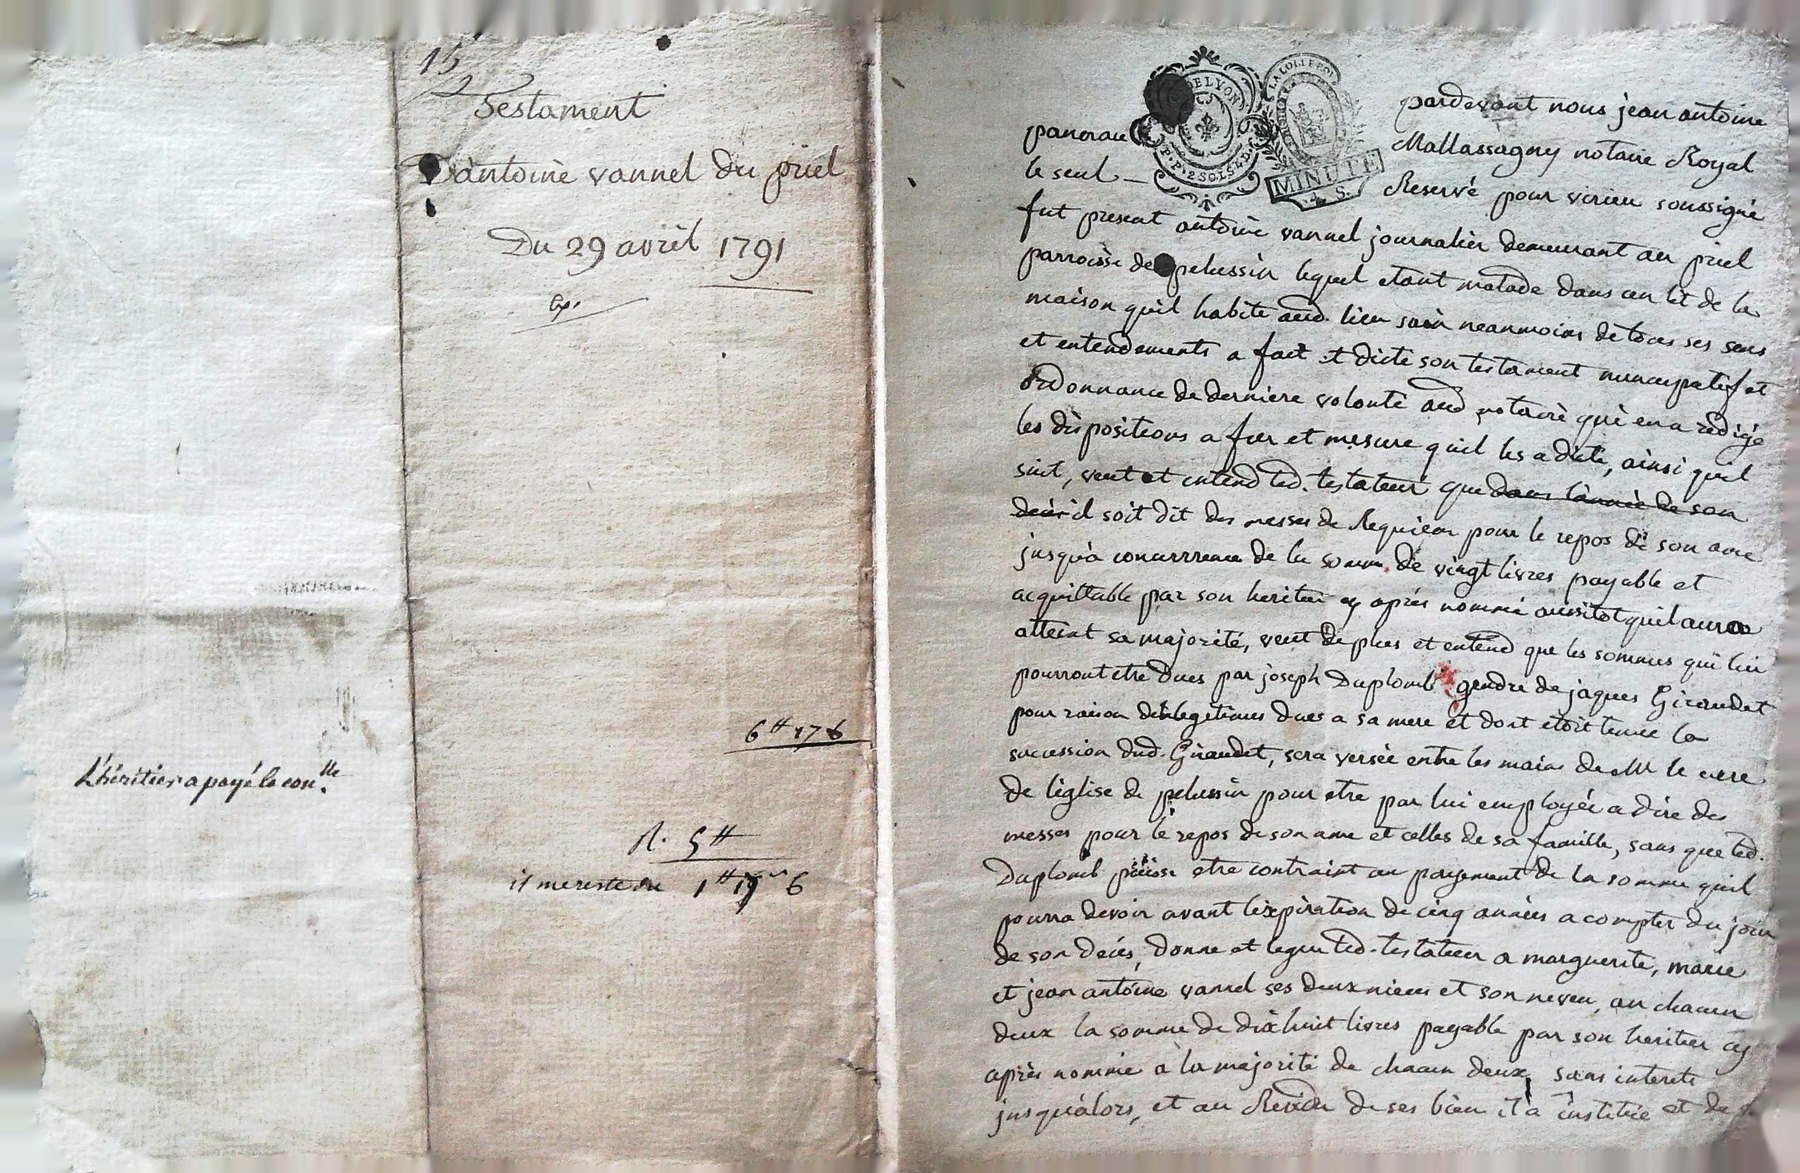 15
Testament
D'antoine vannel du priel
Du 29 avril 1791
Exp.
6# 17 6
L'héritier a payé le con.lle
R. 5#
il me reste du 1# 17s 6
DELYON
P.P. 2 SOLS LD.
LA LOI LE ROI
MINUTE
4. S.
pardevant nous jean antoine
panerau Mallassagny notaire Royal
le seul Reservé pour virieu soussigné
fut present antoine vannel journalier demeurant au priel
parroisse de pelussin lequel etant malade dans un lit de la
maison quil habite aud. lieu sain neanmoins de tous ses sens
et entendements a fait et dicté son testament nuncupatif et
ordonnance de derniere volonté aud notaire qui en a redigé
les dispositions a fur et mesure quil les a dicté, ainsi quil
suit, veut et entend led. testateur que dans l'année de son
décès il soit dit des messes de Requiem pour le repos de son ame
jusqu'a concurrence de la somme de vingt livres payable et
acquittable par son heritier cy après nommé aussitot quil aura
atteint sa majorité, veut de plus et entend que les sommes qui lui
pourront etre dues par joseph Duplomb gendre de jaques Giraudet
pour raison de legitimes dues a sa mere et dont etoit tenue la
sucession dud. Giraudet, sera versée entre les mains de Mr le cure
de l'église de pelussin pour etre par lui employée a dire des
messes pour le repos de son ame et celles de sa famille, sans que led.
Duplomb puisse etre contraint au payement de la somme quil
pourra devoir avant l'expiration de cinq années a compter du jour
de son decés, donne et legue led. testateur a marguerite, marie
et jean antoine vannel ses deux nieces et son neveu, au chacun
deux la somme de dix huit livres payable par son heritier cy
après nommé a la majorité de chacun deux, sans interets
jusqu'alors, et au Residu de ses bien il a institué et de